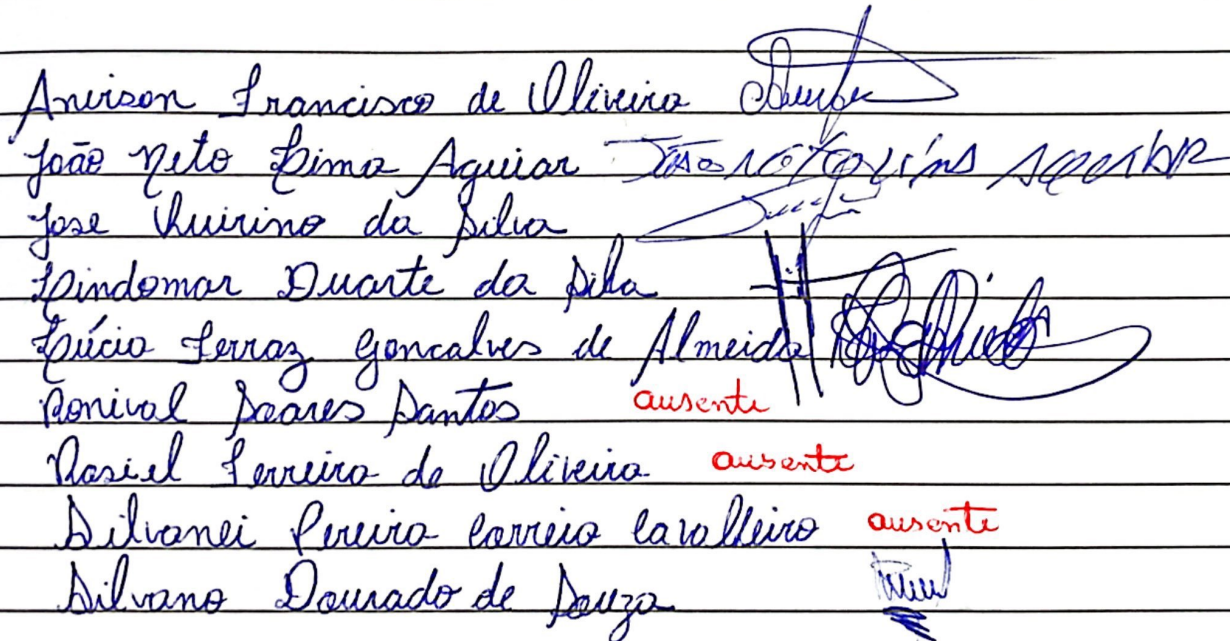 Anirson Francisco de Oliveira
João Neto Lima Aguiar João Neto Lima Aguiar
Jose Quirino da Silva
Lindomar Duarte da Sila
Lúcio Ferraz Goncalves de Almeida
Ronival Soares Santos ausente
Rosiel Ferreira de Oliveira ausente
Silvanei Pereira Correia Cavalheiro ausente
Silvano Dourado de Souza